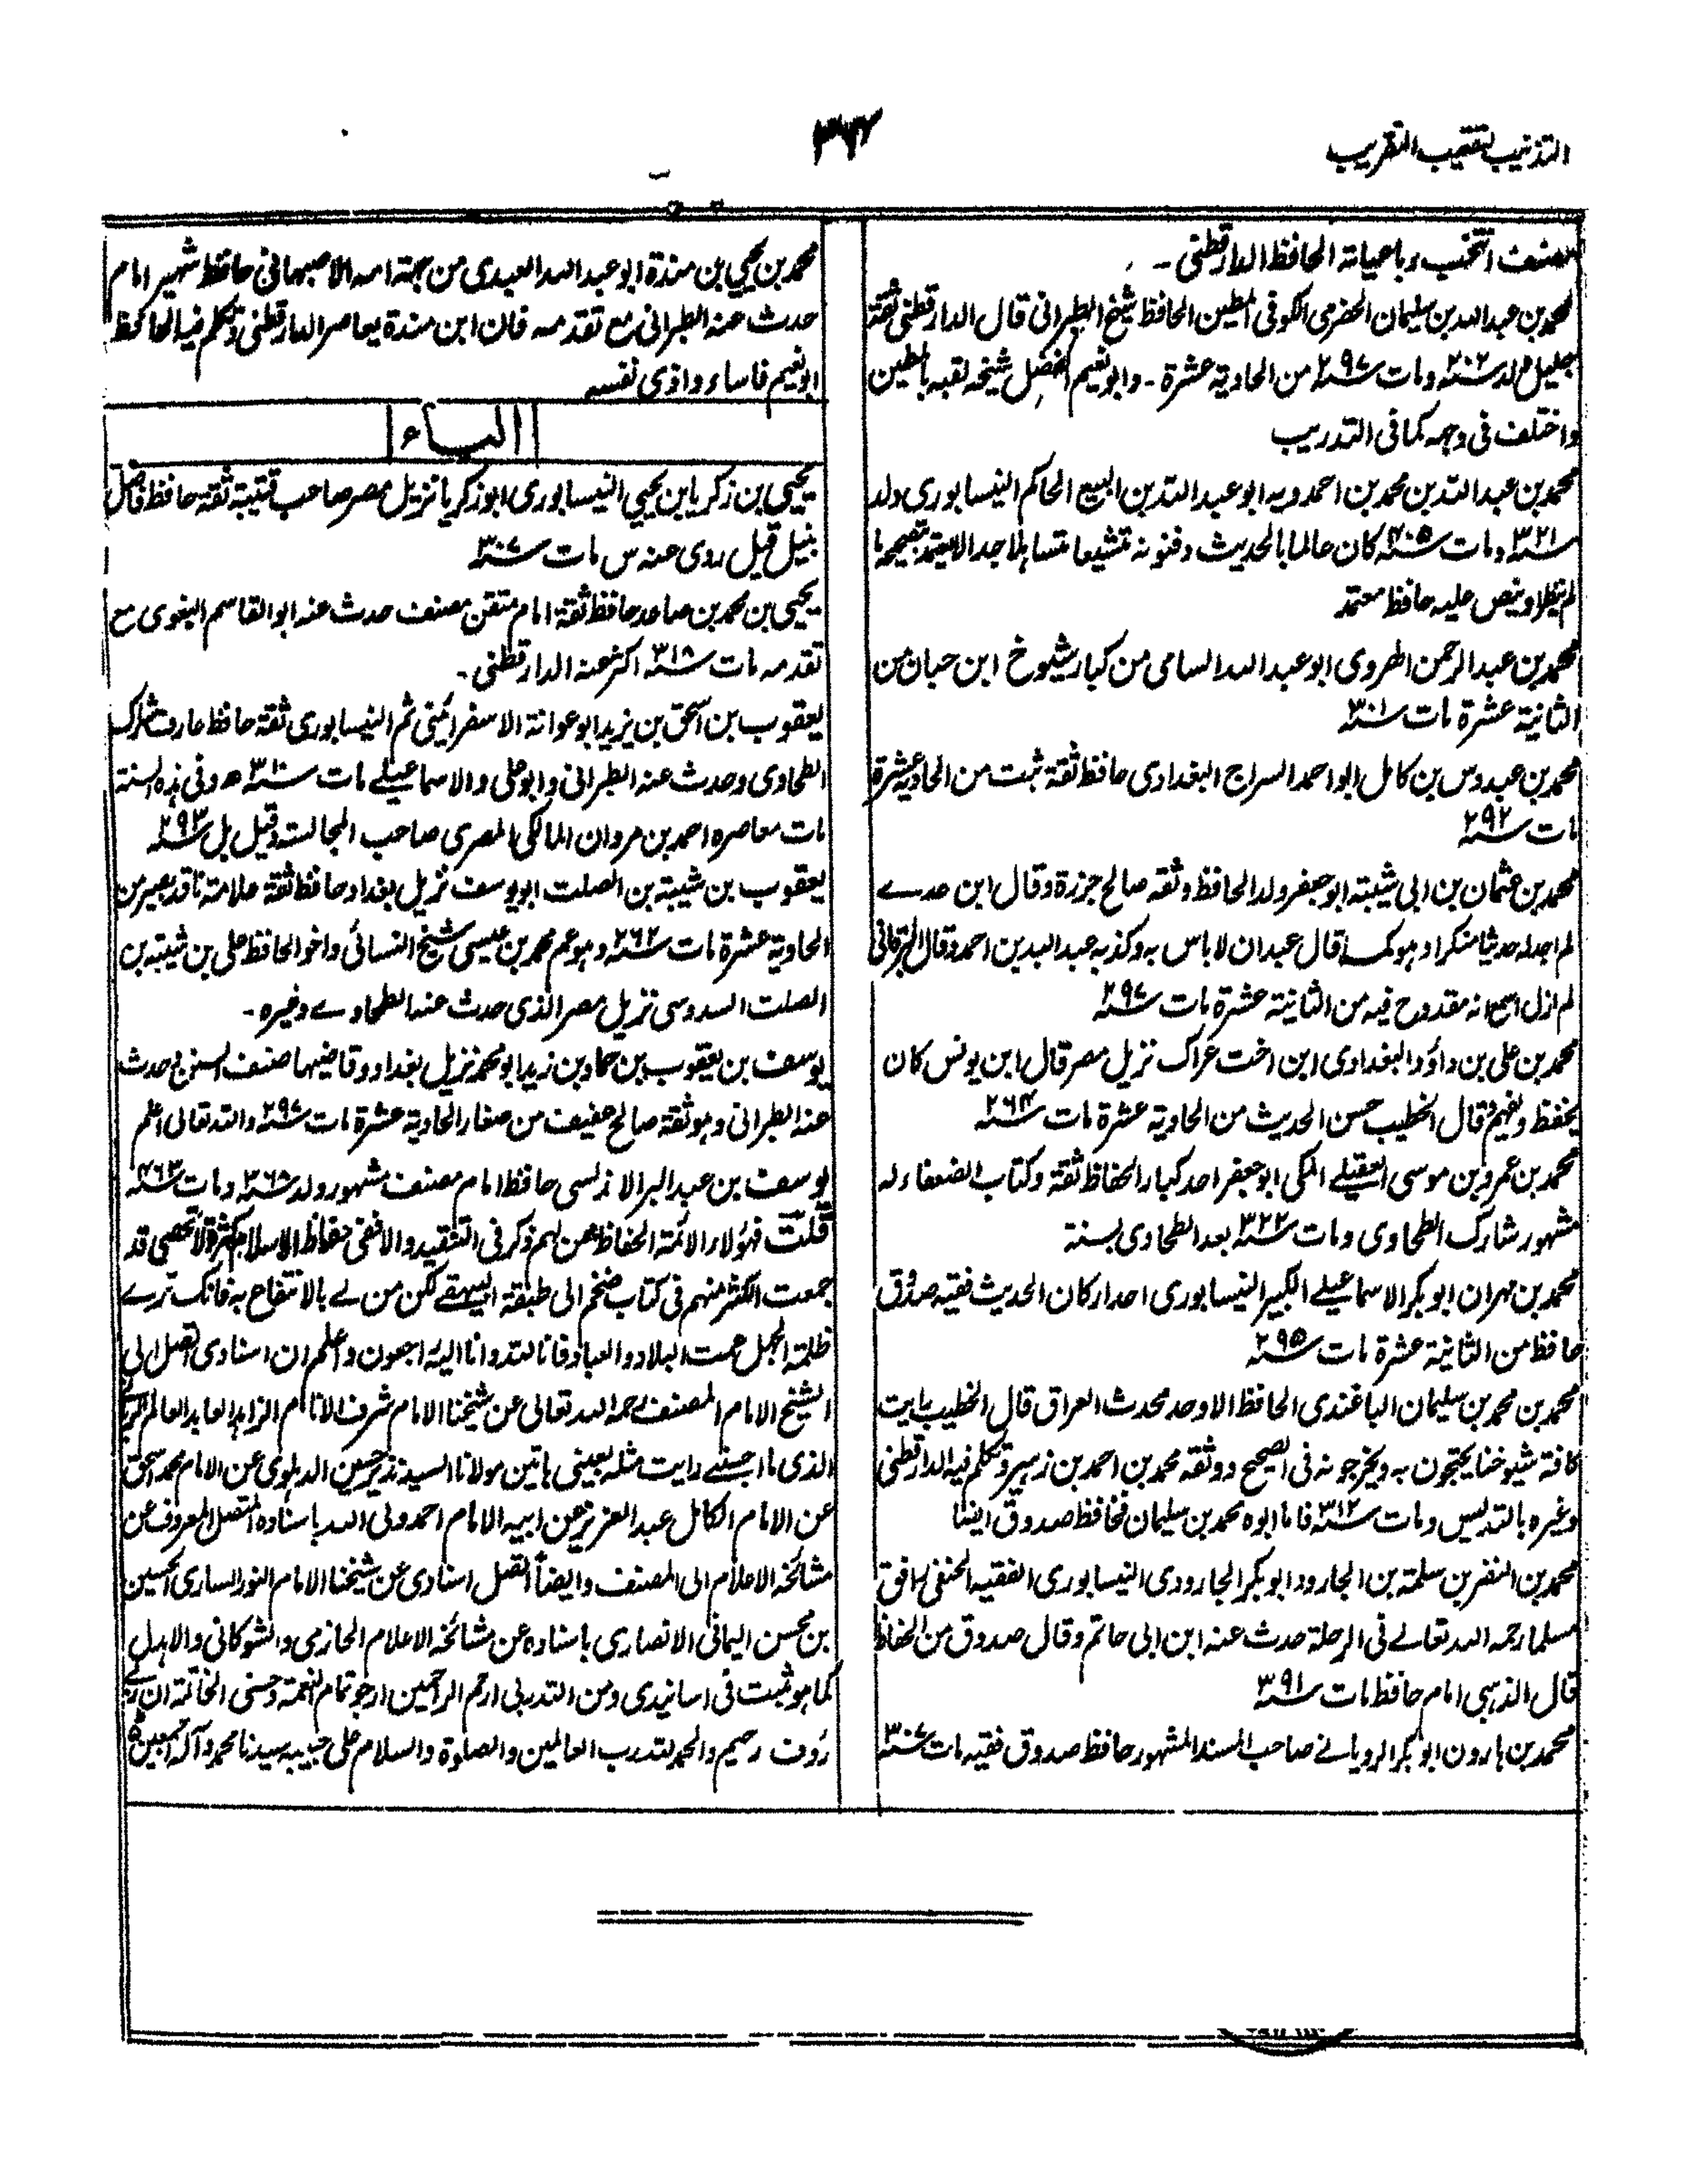 التذنيب لتعقيب التقريب
٣٧٢
مصنف انتخب رباعياته الحافظ الدارقطني ۔
محمد بن عبد الله بن سليمان الحضرمي الكوفي المطين الحافظ شيخ الطبراني قال الدارقطني ثقة
جليل ولد سنة ٢٠٢ ومات سنة ٢٩٧ من الحادية عشرة ۔ وابو نعيم الفضل شيخه لقبه بالمطين
واختلف في وجهه كما في التدريب
محمد بن عبد الله بن محمد بن احمدويه ابو عبد الله بن البيع الحاكم النيسابوري ولد
سنة ٣٢١ ومات سنة ٤٠٥ كان عالما بالحديث وفنونه متشيعا متساهلا جدا لا يعتمد تصحيحه ما
لم ينظر او ينص عليه حافظ معتمد
محمد بن عبد الرحمن الهروي ابو عبد الله السامي من كبار شيوخ ابن حبان من
الثانية عشرة مات سنة ٣٠١
محمد بن عبدوس بن كامل ابو احمد السراج البغدادي حافظ ثقة ثبت من الحادية عشرة
مات سنة ٢٩٢
محمد بن عثمان بن ابي شيبة ابو جعفر ولد الحافظ وثقه صالح جزرة وقال ابن عدے
لم اجد له حديثا منكرا وهو كما قال عبدان لا باس به وكذبه عبد الله بن احمد وقال البرقاني
لم ازل اسمع انه مقدوح فيه من الثانية عشرة مات سنة ٢٩٧
محمد بن علي بن داؤد البغدادي ابن اخت عراك نزيل مصر قال ابن يونس كان
يحفظ ويفهم وقال الخطيب حسن الحديث من الحادية عشرة مات سنة ٢٦٤
محمد بن عمرو بن موسى العقيلے المكي ابو جعفر احد كبار الحفاظ ثقة وكتاب الضعفاء له
مشهور شارك الطحاوي ومات سنة ٣٢٢ بعد الطحاوي بسنة
محمد بن مهران ابو بكر الاسماعيلے الكبير النيسابوري احد اركان الحديث فقيه صدوق
حافظ من الثانية عشرة مات سنة ٢٩٥
محمد بن محمد بن سليمان الباغندي الحافظ الاوحد محدث العراق قال الخطيب رايت
كافة شيوخنا يحتجون به ويخرجونه في الصحيح ووثقه محمد بن احمد بن زهير وتكلم فيه الدارقطني
وغيره بالتدليس ومات سنة ٣١٢ فاما ابوه محمد بن سليمان فحافظ صدوق ايضا
محمد بن النضر بن سلمة بن الجارود ابو بكر الجارودي النيسابوري الفقيه الحنفي رافق
مسلما رحمه الله تعالے في الرحلة حدث عنه ابن ابي حاتم وقال صدوق من الحفاظ
قال الذهبي امام حافظ مات سنة ٣٩١
محمد بن هارون ابو بكر الرويانے صاحب المسند المشهور حافظ صدوق فقيه مات سنة ٣٠٧
محمد بن يحيي بن مندة ابو عبد الله العبدي من جهة امه الاصبهاني حافظ شهير امام
حدث عنه الطبراني مع تقدمه فان ابن مندة يعاصر الدارقطني وتكلم فيه الحافظ
ابو نعيم فاساء واذى نفسه
الياء
يحيى بن زكريا بن يحيي النيسابوري ابو زكريا نزيل مصر صاحب قتيبة ثقة حافظ فاضل
نبيل قيل روى عنه س مات سنة ٣٠٧
يحيى بن محمد بن صاعد حافظ ثقة امام متقن مصنف حدث عنه ابو القاسم البغوي مع
تقدمه مات سنة ٣١٨ اكثر عنه الدارقطني ۔
يعقوب بن اسحق بن يزيد ابو عوانة الاسفرائيني ثم النيسابوري ثقة حافظ عارف شارك
الطحاوي وحدث عنه الطبراني وابو علي والاسماعيلے مات سنة ٣١٠ھ وفي هذه السنة
مات معاصره احمد بن مروان المالكي المصري صاحب المجالسة وقيل بل سنة ٢٩٣
يعقوب بن شيبة بن الصلت ابو يوسف نزيل بغداد حافظ ثقة علامة ناقد بصير من
الحادية عشرة مات سنة ٢٦٢ وهو عم محمد بن عيسى شيخ النسائي واخو الحافظ علي بن شيبة بن
الصلت السدوسي نزيل مصر الذي حدث عنه الطحاوے وغيره ۔
يوسف بن يعقوب بن حماد بن زيد ابو محمد نزيل بغداد وقاضيها صنف السنن وحدث
عنه الطبراني وهو ثقة صالح عفيف من صغار الحادية عشرة مات سنة ٢٩٧ والله تعالى اعلم
يوسف بن عبد البر الاندلسي حافظ امام مصنف مشهور ولد سنة ٣٦٨ ومات سنة ٤٦٣
قلت فهؤلاء الائمة الحفاظ ممن لهم ذكر في التنقيد والا ففي حفاظ الاسلام كثرة لا تحصى قد
جمعت اكثر منهم في كتاب ضخم الى طبقة البيهقے لكن من لے بالانتفاع به فانك ترے
ظلمة الجهل عمت البلاد والعباد فانا لله وانا اليه راجعون واعلم ان اسنادي اتصل الى
الشيخ الامام المصنف رحمه الله تعالى عن شيخنا الامام شرف الانام الزاهد العابد العالم
الذي ما احسبنے رايت مثله بعيني هاتين مولانا السيد نذير حسين الدهلوي عن الامام محمد اسحق
عن الامام الكامل عبد العزيز عن ابيه الامام احمد ولي الله باسناده المتصل المعروف عن
مشائخه الاعلام الى المصنف وايضاً اتصل اسنادي عن شيخنا الامام النور الساري الحسين
بن محسن اليماني الانصاري باسناده عن مشائخه الاعلام الحازمي والشوكاني والاهدل
كما هو ثبت في اسانيدي ومن الله ربي ارحم الراحمين ارجو تمام النعمة وحسنى الخاتمة ان ربے
رؤف رحيم والحمد لله رب العالمين والصلوة والسلام على حبيبه سيدنا محمد وآله اجمعين